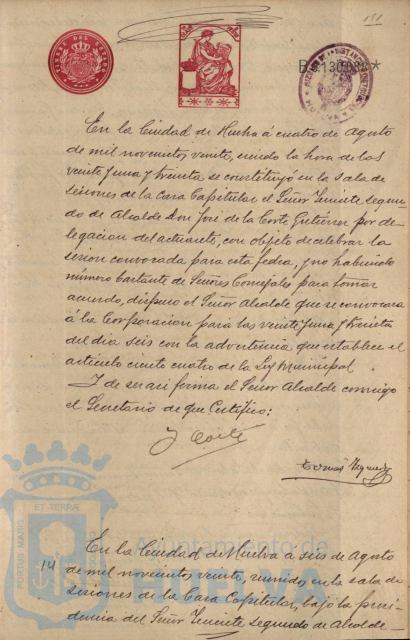 151
B.9.130.089*
En la Ciudad de Huelva á cuatro de Agosto
de mil novecientos veinte, siendo la hora de las
veinte y una y treinta se constituyó en la sala de
sesiones de la Casa Capitular el Señor Teniente segun-
do de Alcalde Don José de la Corte Gutierrez por de-
legacion del actuante, con objeto de celebrar la
sesion convocada para esta fecha, y no habiendo
número bastante de Señores Concejales para tomar
acuerdo, dispuso el Señor Alcalde que se convocara
á la Corporacion para las veinte y una y treinta
del dia seis con la advertencia que establece el
artículo ciento cuatro de la Ley Municipal.
Y de ser asi firma el Señor Alcalde conmigo
el Secretario de que Certifico:
J Corte
Tomás
ET TERRÆ
PORTUS MARIS
Ayuntamiento de
HUELVA
14
En la Ciudad de Huelva a seis de Agosto
de mil novecientos veinte, reunidos en la sala de
sesiones de la Casa Capitular, bajo la presi-
dencia del Señor Teniente segundo de Alcalde